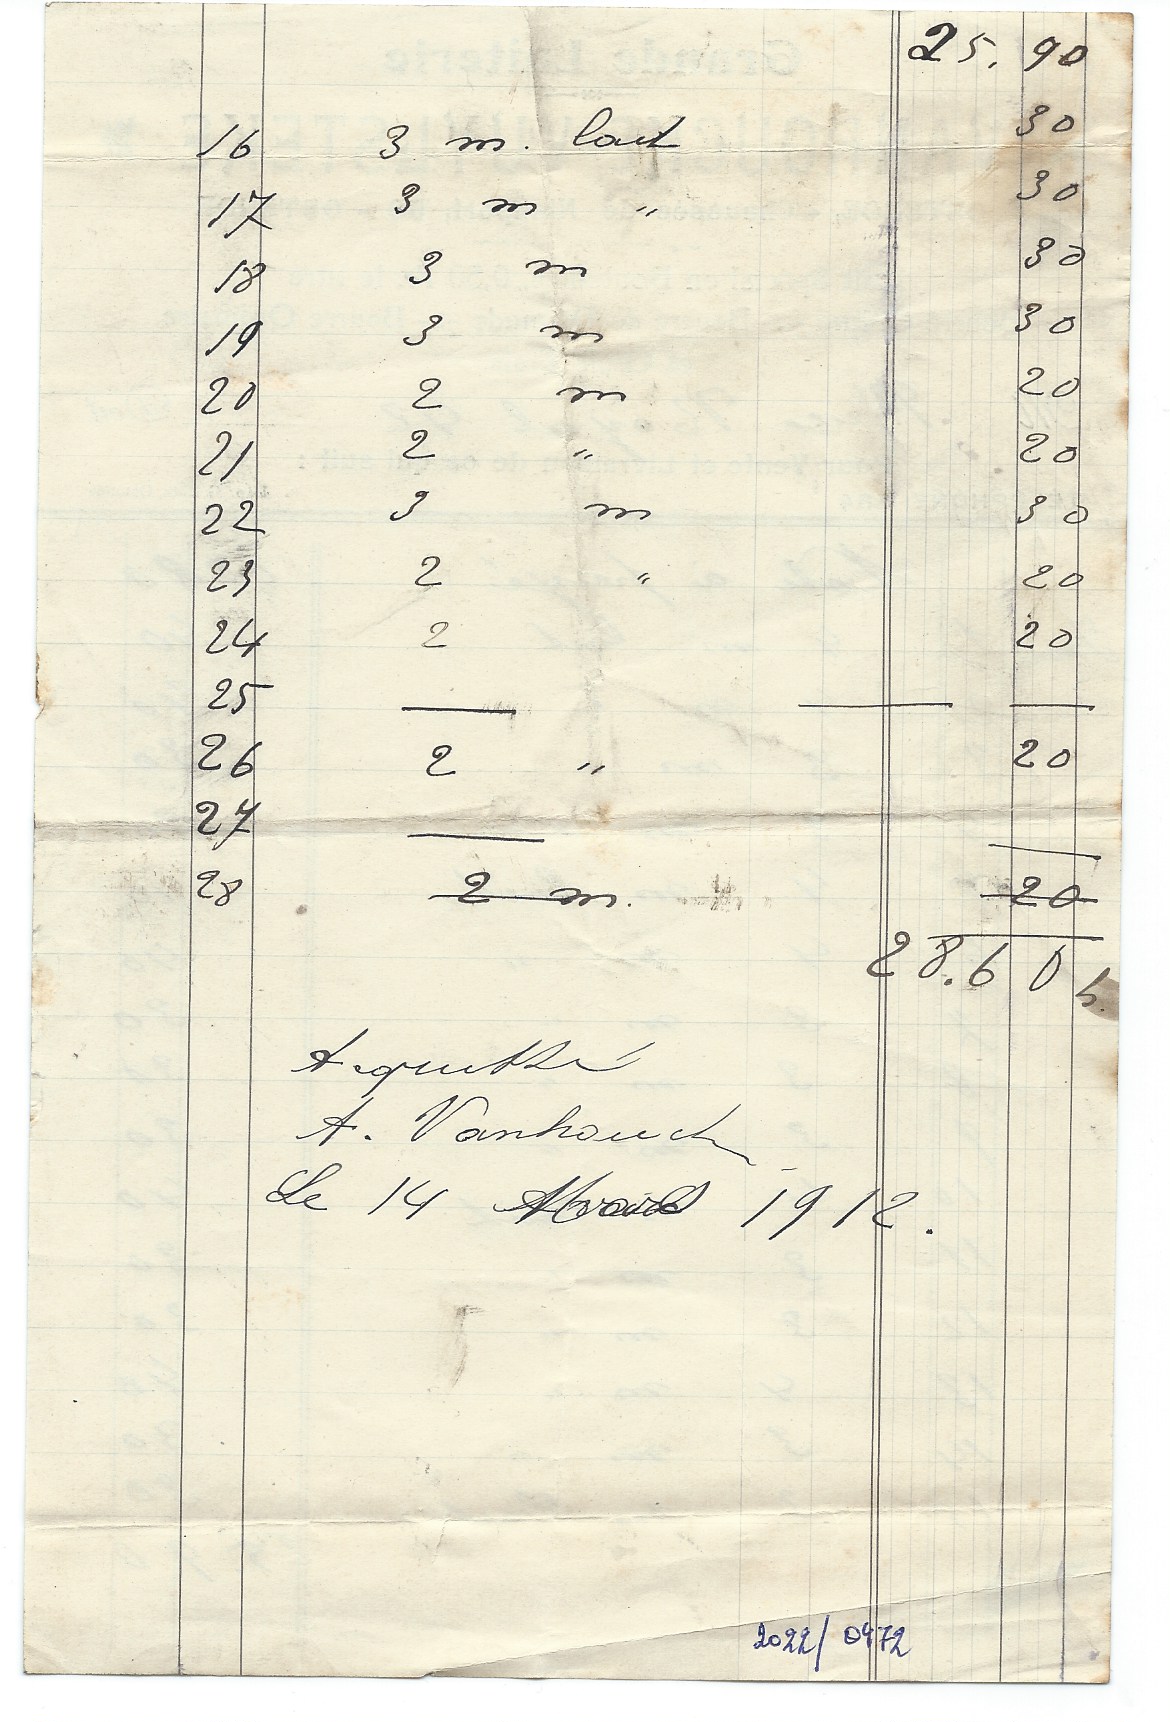 25.90
16 3 m. lait 30
17 3 m " 30
18 3 m 30
19 3 m 30
20 2 m 20
21 2 " 20
22 3 m 30
23 2 " 20
24 2 20
25 — — —
26 2 " 20
27 — —
28 2 m. 20
28.60
A. Vanhouch
Le 14 1912.
2022/0472